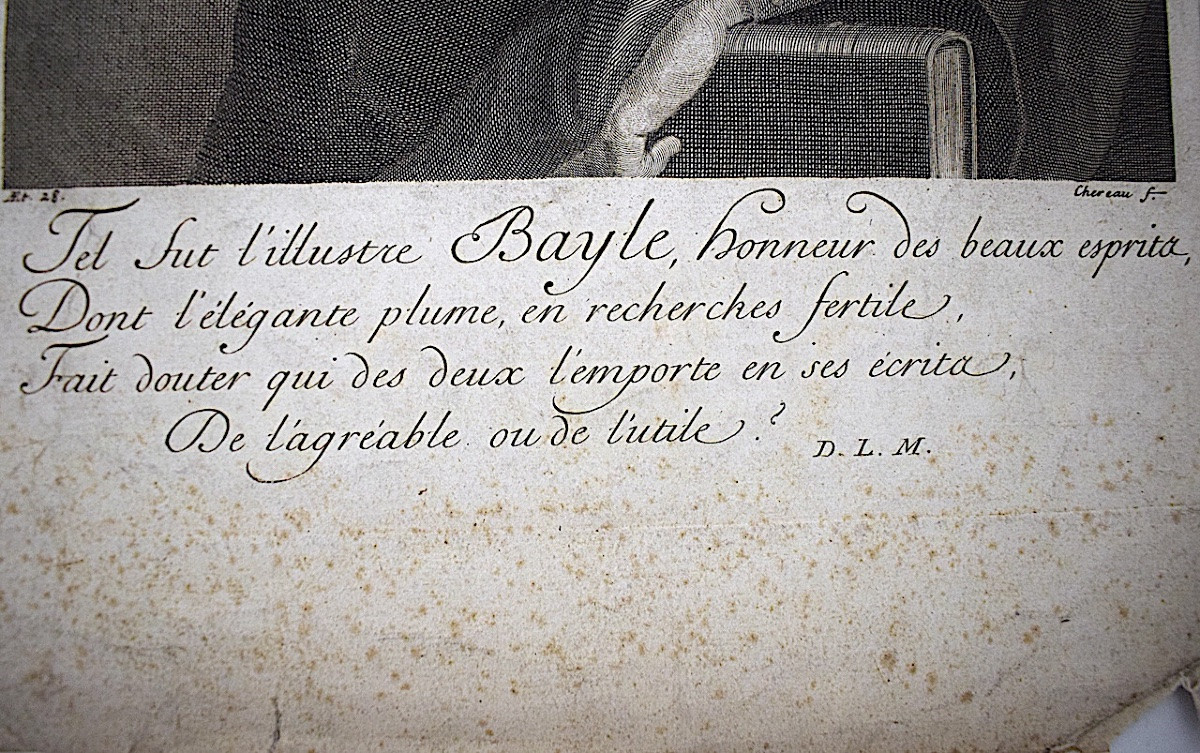 Æt. 28.
Chereau f.
Tel fut l'illustre Bayle, honneur des beaux esprits,
Dont l'élégante plume, en recherches fertile,
Fait douter qui des deux l'emporte en ses écrits,
De l'agréable ou de l'utile.?
D. L. M.